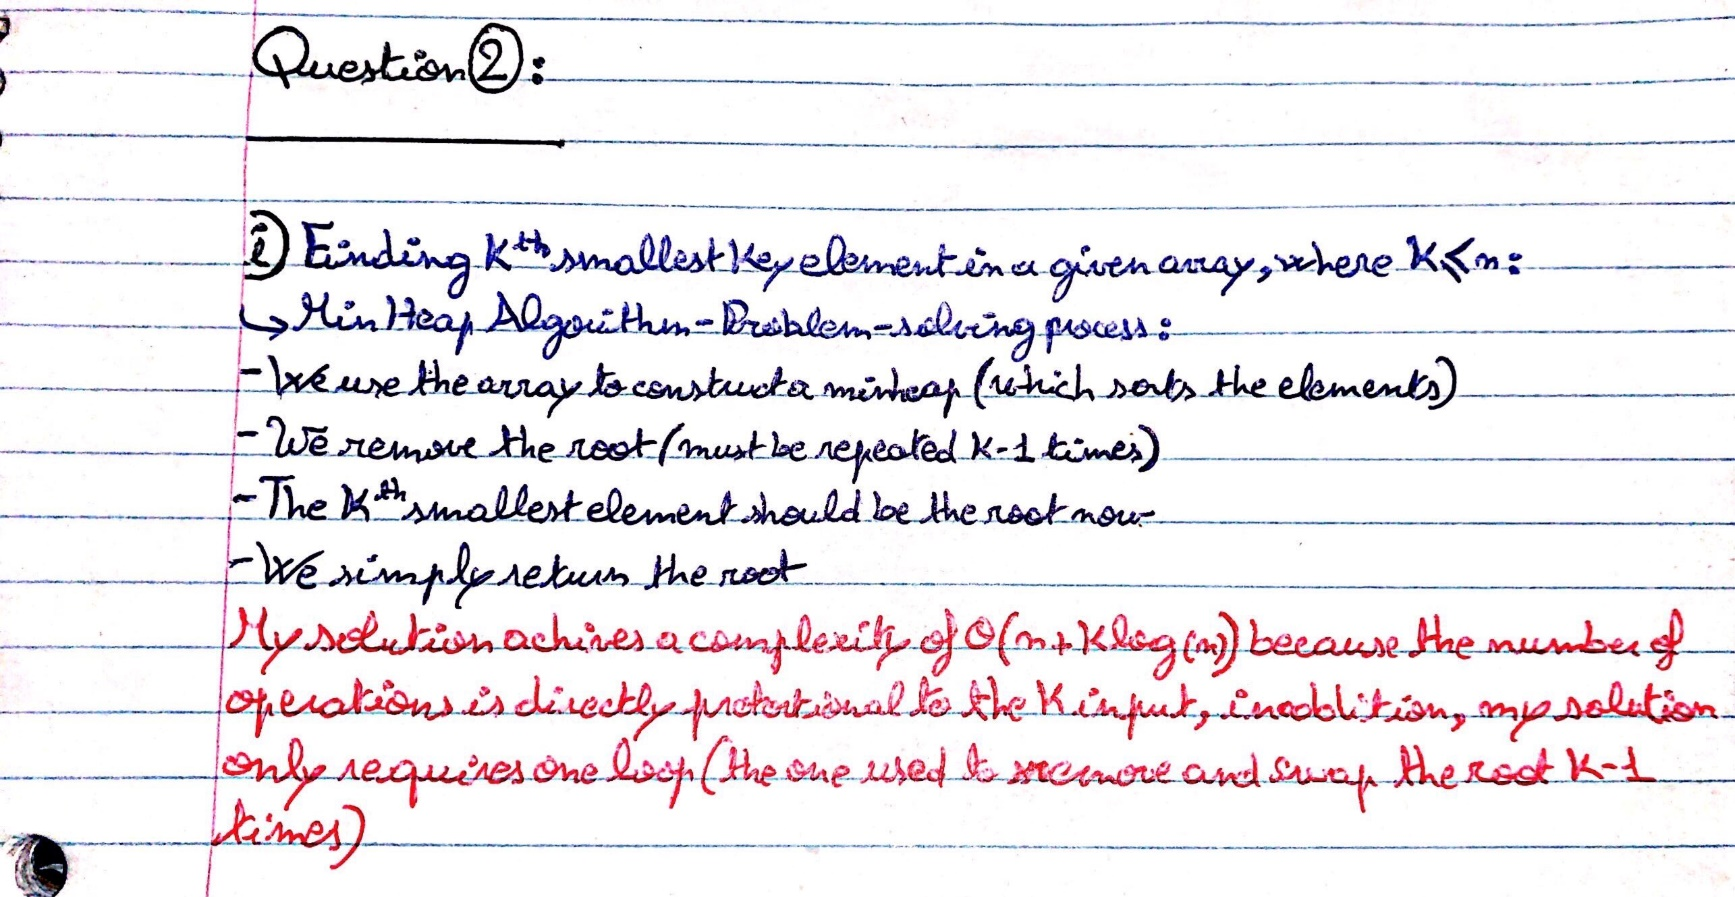 Question ②:
i) Finding Kth smallest Key element in a given array, where K≤n:
↳ Min Heap Algorithm - Problem-solving process:
- We use the array to construct a minheap (which sorts the elements)
- We remove the root (must be repeated K-1 times)
- The Kth smallest element should be the root now-
- We simply return the root
My solution achives a complexity of O(n+Klog(n)) because the number of
operations is directly protortional to the K input, in addition, my solution
only requires one loop (the one used to remove and swap the root K-1
times)